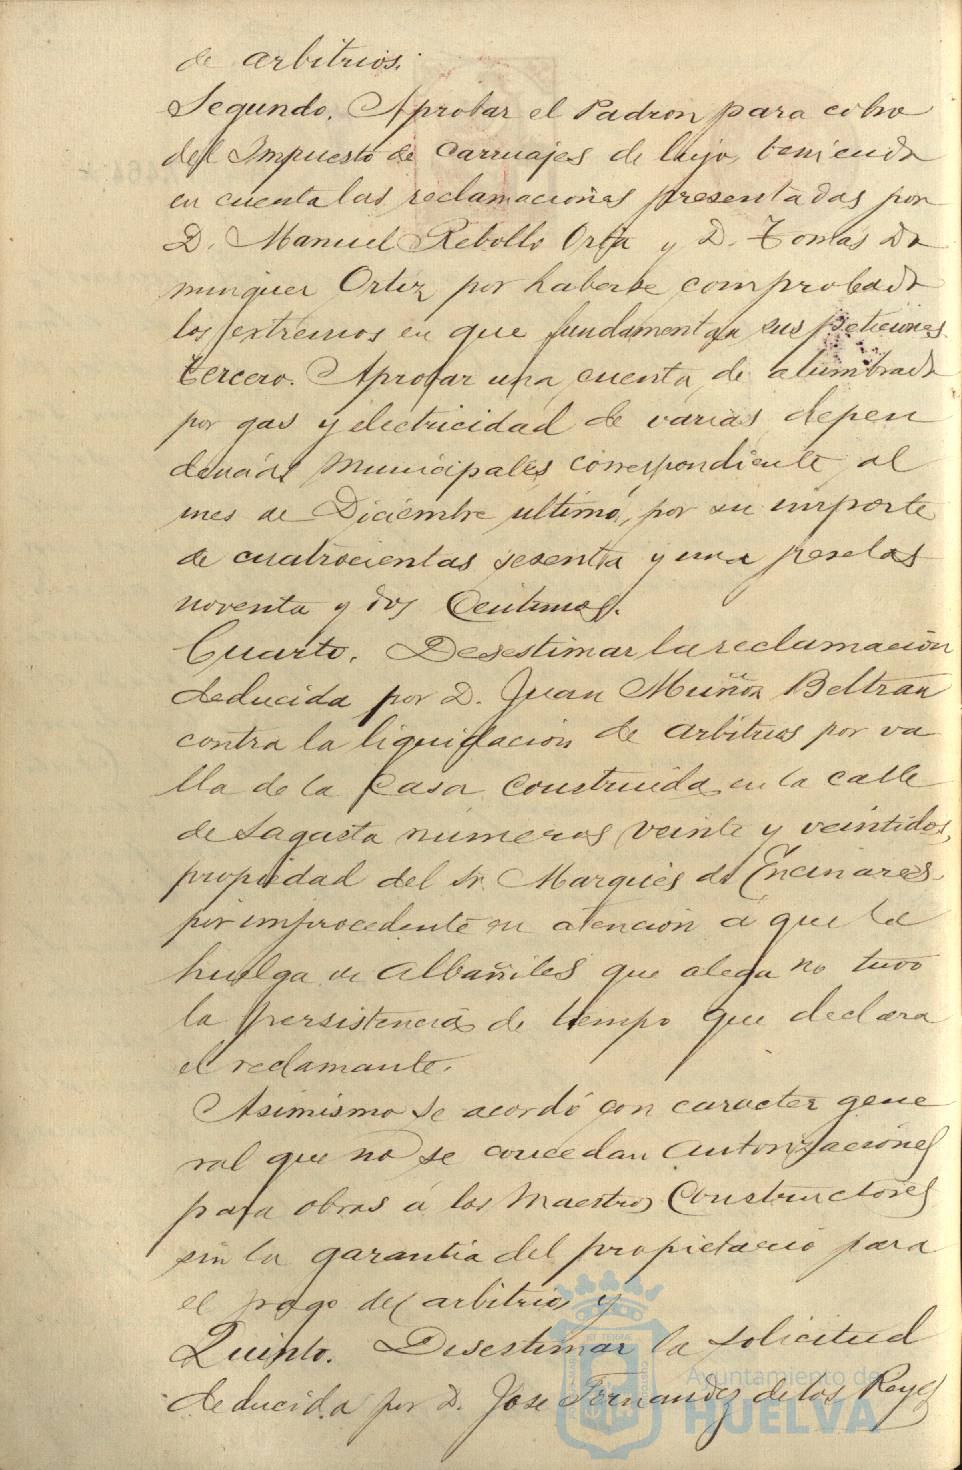 de arbitrios.
Segundo. Aprobar el Padron para cobro
del Impuesto de Carruajes de lujo, teniendo
en cuenta las reclamaciones presentadas por
D. Manuel Rebollo Orta y D. Tomás Do
minguez Ortiz por haberse comprobado
los extremos en que fundamentan sus peticiones.
Tercero. Aprobar una cuenta de alumbrado
por gas y electricidad de varias depen
dencias municipales correspondiente al
mes de Diciembre ultimo, por su importe
de cuatrocientas sesenta y una pesetas
noventa y dos Centimos.
Cuarto. Desestimar la reclamación
deducida por D. Juan Muñoz Beltrán
contra la liquidación de arbitrios por va
lla de la Casa construida en la calle
de Sagasta numeros veinte y veintidos,
propiedad del Sr. Marqués de Encinares
por improcedente en atención á que la
huelga de Albañiles que alega no tuvo
la persistencia de tiempo que declara
el reclamante.
Asimismo se acordó con caracter gene
ral que no se concedan autorizaciones
para obras á los Maestros Constructores
sin la garantia del propietario para
el pago del arbitrio y
Quinto. Desestimar la solicitud
deducida por D. Jose Fernandez de los Reyes
Ayuntamiento de
HUELVA